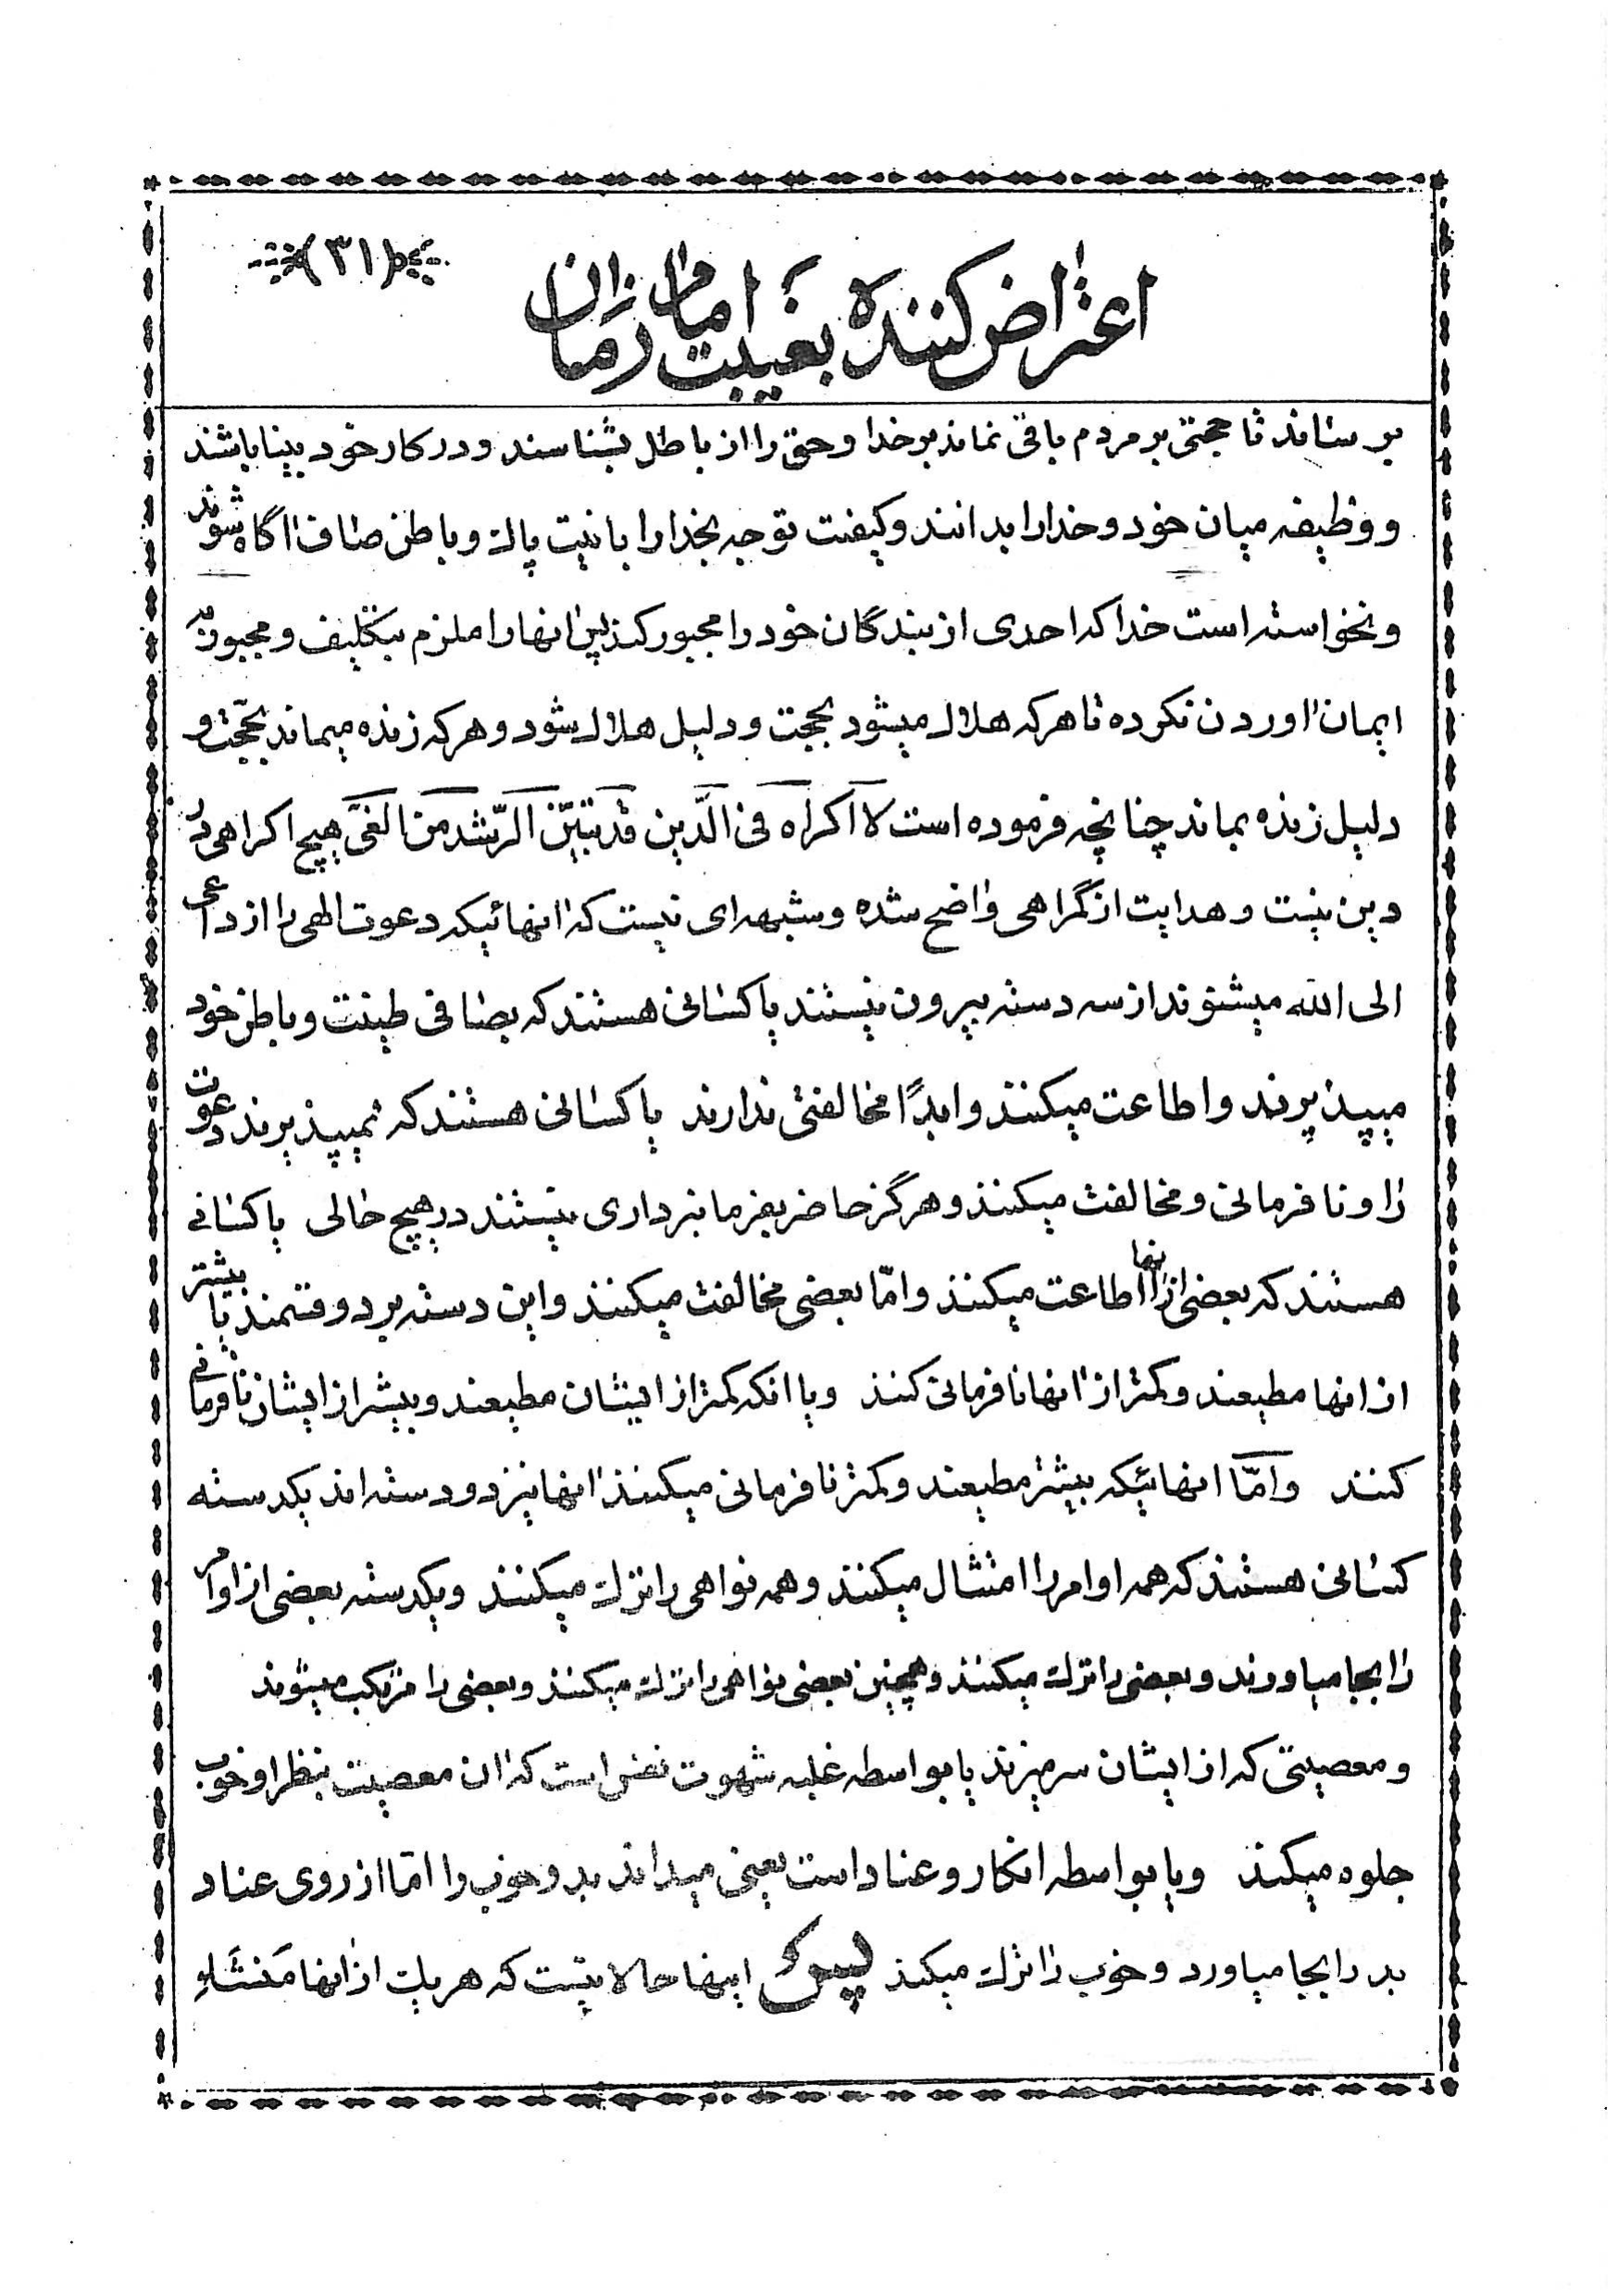 (۳۱)
اعتراض کننده بغیبت امام زمان را
برساند تا حجتی بر مردم باقی نماند بر خدا و حق را از باطل بشناسند و در کار خود بینا باشند
و وظیفه میان خود و خدا را بدانند و کیفیت توجه بخدا را با نیت پاک و باطن صاف اگاه شوند
و نخواسته است خدا که احدی از بندگان خود را مجبور کند پس انها را ملزم بتکلیف و مجبور در
ایمان اوردن نکرده تا هر که هلاک میشود بحجت و دلیل هلاک شود و هر که زنده میماند بحجّت و
دلیل زنده بماند چنانچه فرموده است لا اکراه فی الدّین قد تبیّن الرّشد من الغیّ هیچ اکراهی در
دین نیست و هدایت از گمراهی واضح شده و شبهه ای نیست که انهائیکه دعوت الهی را از داعی
الی الله میشنوند از سه دسته بیرون نیستند یا کسانی هستند که بصافی طینت و باطن خود
میپذیرند و اطاعت میکنند و ابدًا مخالفتی ندارند یا کسانی هستند که نمیپذیرند دعوت
را و نافرمانی و مخالفت میکنند و هرگز حاضر بفرمانبرداری نیستند در هیچ حالی یا کسانی
هستند که بعضی از انها اطاعت میکنند و امّا بعضی مخالفت میکنند و این دسته بر دو قسمند یا بیشتر
از انها مطیعند و کمتر از انها نافرمانی کنند و یا انکه کمتر از ایشان مطیعند و بیشتر از ایشان نافرمانی
کنند و امّا انهائیکه بیشتر مطیعند و کمتر نافرمانی میکنند انها نیز دو دسته اند یکدسته
کسانی هستند که همه اوامر را امتثال میکنند و همه نواهی را ترک میکنند و یکدسته بعضی از اوامر
را بجا میاورند و بعضی را ترک میکنند و همچنین بعضی نواهی را ترک میکنند و بعضی را مرتکب میشوند
و معصیتی که از ایشان سر میزند یا بواسطه غلبه شهوت نفس است که ان معصیت بنظر او خوب
جلوه میکند و یا بواسطه انکار و عناد است یعنی میداند بد و خوب را امّا از روی عناد
بد را بجا میاورد و خوب را ترک میکند پس اینها حالا بیست که هر یک از انها مَنشَاءِ